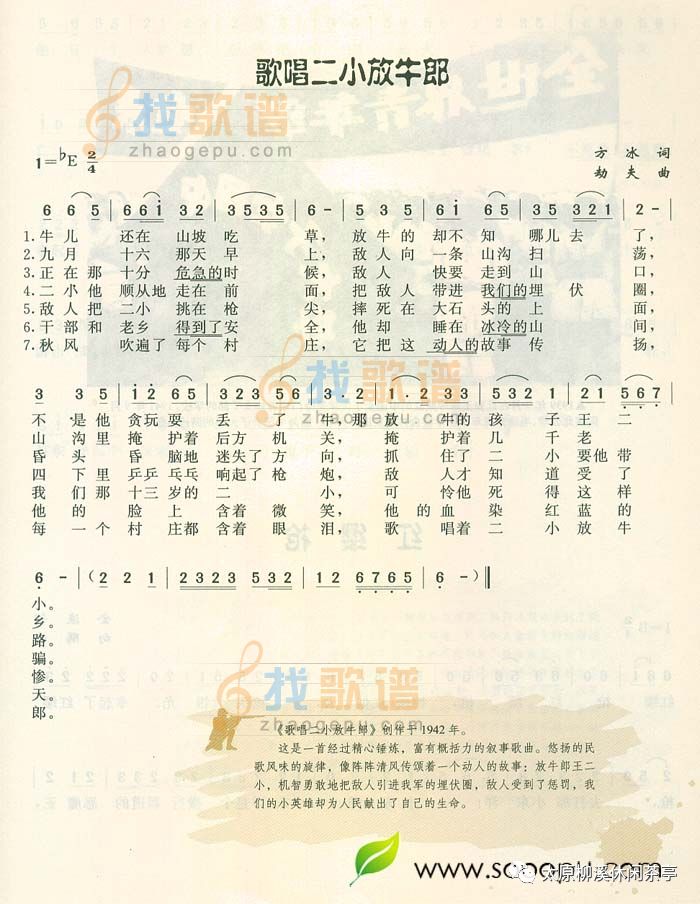 歌唱二小放牛郎
找歌谱
zhaogepu.com
1=♭E 2/4
方冰 词
劫夫 曲
6 6 5 | 6 6 i 3 2 | 3 5 3 5 | 6 - | 5 5 5 | 6 i 6 5 | 3 5 3 2 1 | 2 - |
1.牛儿 还在 山坡 吃 草，放牛的 却不 知 哪儿去 了，
2.九月 十六 那天 早 上，敌人向 一条 山沟 扫 荡，
3.正在那 十分 危急的 时 候，敌人 快要 走到 山 口，
4.二小他 顺从地 走在 前 面，把敌人 带进 我们的 埋伏 圈，
5.敌人把 二小 挑在 枪 尖，摔死在 大石 头的 上 面，
6.干部和 老乡 得到了 安 全，他却 睡在 冰冷的 山 间，
7.秋风 吹遍了 每个 村 庄，它把这 动人的 故事 传 扬，
3 3 5 | i 2 6 | 3 2 3 5 6 | 3 · 2 | 1 · 2 3 3 | 5 6 1 | 2 1 2 | 5 6 7 |
不是他 贪玩耍 丢了 牛，那放 牛的孩 子王二
山沟里 掩护着 后方机 关，掩护着 几千老
昏头 昏脑地 迷失了方 向，抓住了 二小要他带
四下里 乒乒乓乓 响起了枪 炮，敌人才知 道受了
我们那 十三岁的 二 小，可怜他 死得这样
他的 脸上 含着微 笑，他的血 染红蓝的
每一个 村庄都 含着眼 泪，歌唱着 二小放牛
6 - | (2 2 1 | 2 3 2 3 | 5 3 5 3 | 2 3 2 1 | 1 2 | 6 7 6 5 | 6 - ) ‖
小。
乡。
路。
骗。
惨。
天。
郎。
找歌谱
zhaogepu.com
找歌谱
zhaogepu.com
《歌唱二小放牛郎》创作于1942年。
这是一首经过精心锤炼，富有概括力的叙事歌曲。悠扬的民
歌风味的旋律，像阵阵清风传颂着一个动人的故事：放牛郎王二
小，机智勇敢地把敌人引进我军的埋伏圈，敌人受到了惩罚，我
们的小英雄却为人民献出了自己的生命。
www.soopu.com
太原柳溪休闲茶亭